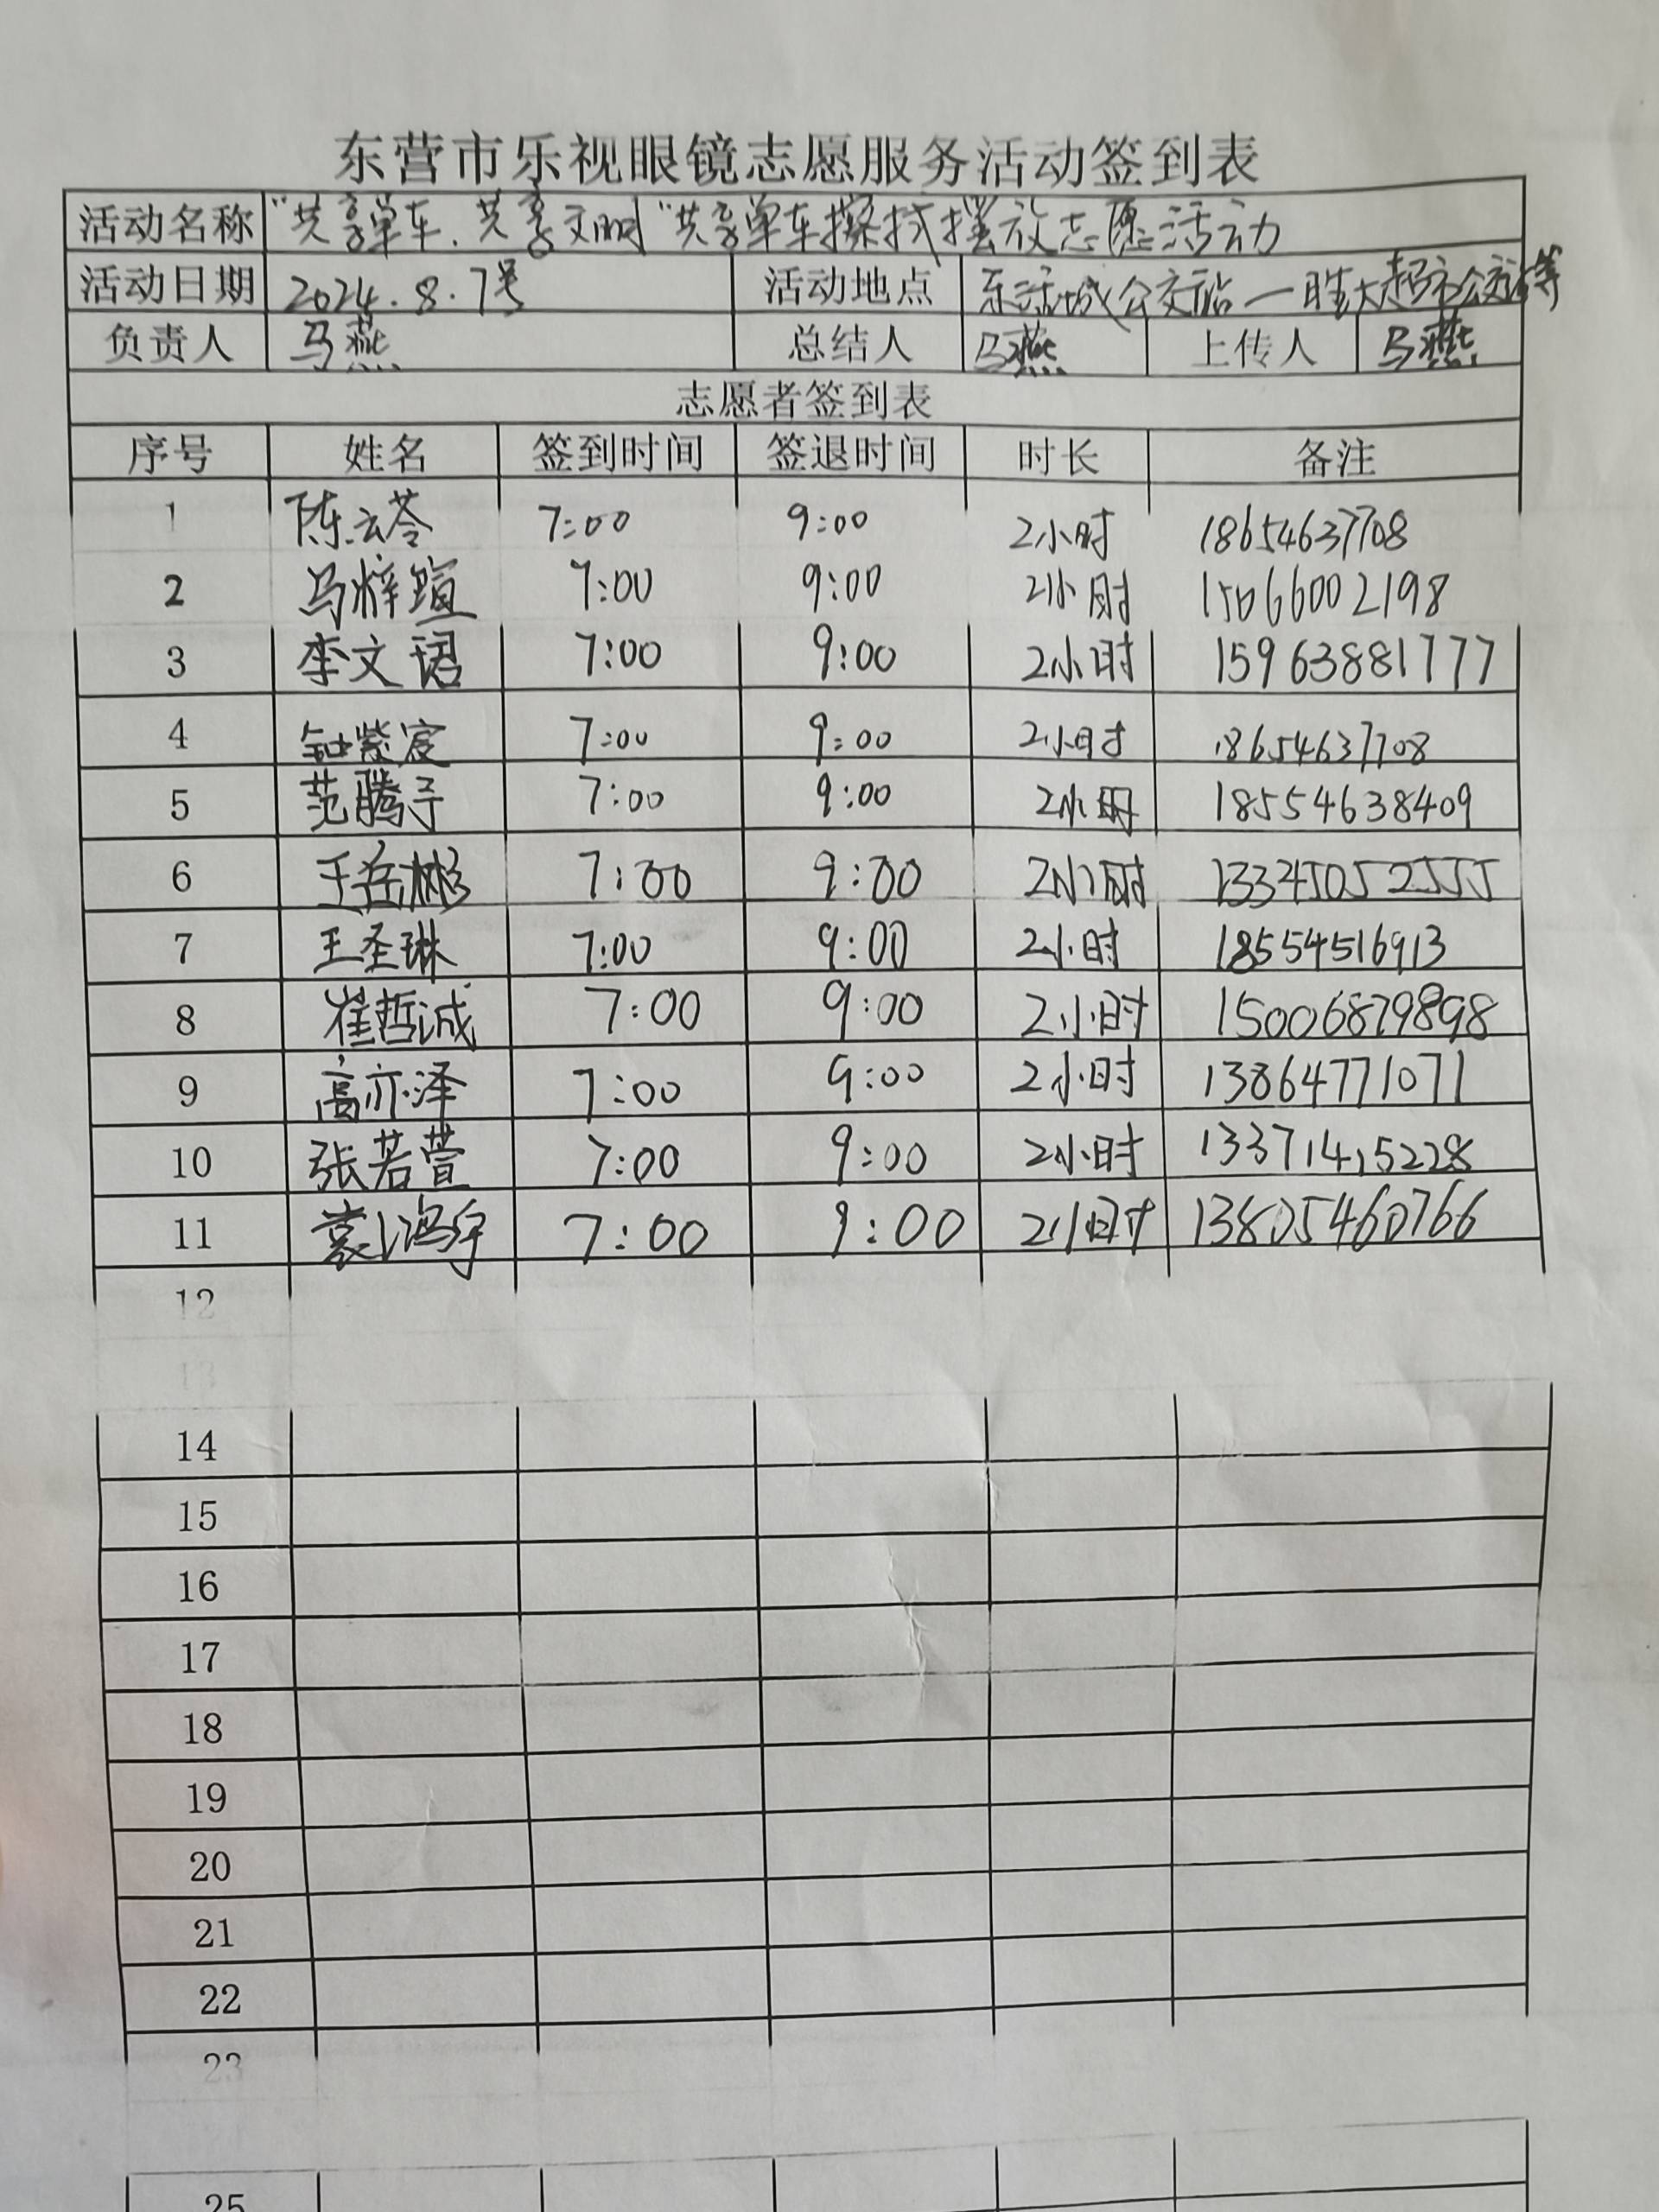 东营市乐视眼镜志愿服务活动签到表
活动名称 "共享单车、共享文明"共享单车擦拭摆放志愿活动
活动日期 2024.8.7号 活动地点 东活城公交站—胜大超市公交站等
负责人 马燕 总结人 马燕 上传人 马燕
志愿者签到表
序号 姓名 签到时间 签退时间 时长 备注
1 陈云苓 7:00 9:00 2小时 18654637708
2 马梓瑄 7:00 9:00 2小时 15066002198
3 李文珺 7:00 9:00 2小时 15963881777
4 钟紫宸 7:00 9:00 2小时 18654637708
5 范腾予 7:00 9:00 2小时 18554638409
6 王岳彬 7:00 9:00 2小时 13345052555
7 王圣琳 7:00 9:00 2小时 18554516913
8 崔哲诚 7:00 9:00 2小时 15006879898
9 高亦泽 7:00 9:00 2小时 13864771071
10 张若萱 7:00 9:00 2小时 13371415228
11 袁鸿宇 7:00 9:00 2小时 13805460766
12
13
14
15
16
17
18
19
20
21
22
23
24
25